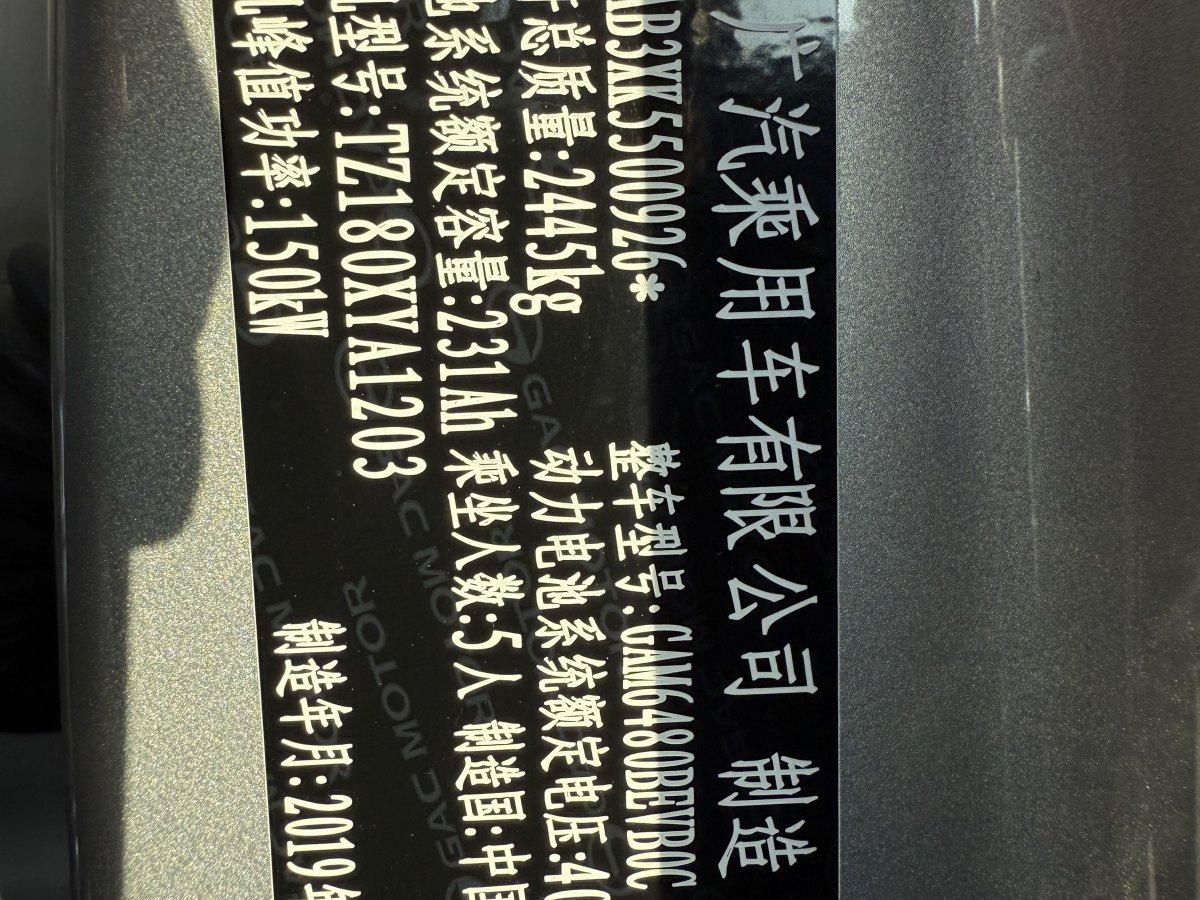 广汽乘用车有限公司 制造
AB3XK5500926* 整车型号:GAM6480BEVB0C
总质量:2445kg 动力电池系统额定电压:40
池系统额定容量:231Ah 乘坐人数:5人 制造国:中国
机型号:TZ180XYA1203
机峰值功率:150kW 制造年月:2019年